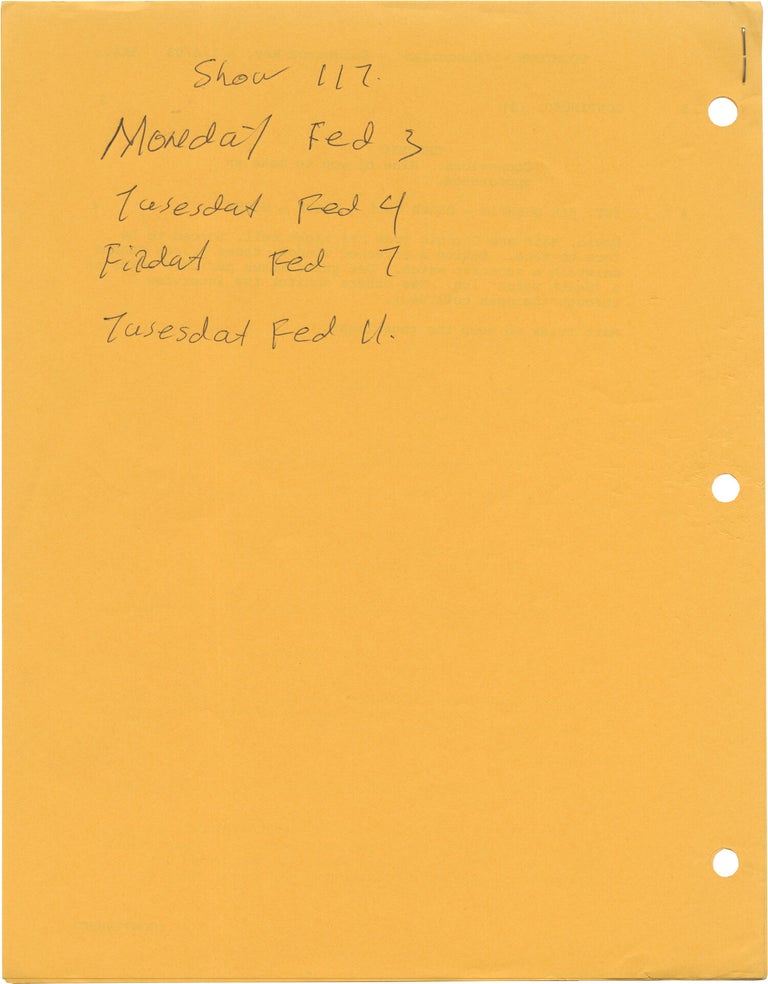 Show 117.
Monday Fed 3
Tusesdat Fed 4
Firdat Fed 7
Tusesdat Fed 11.